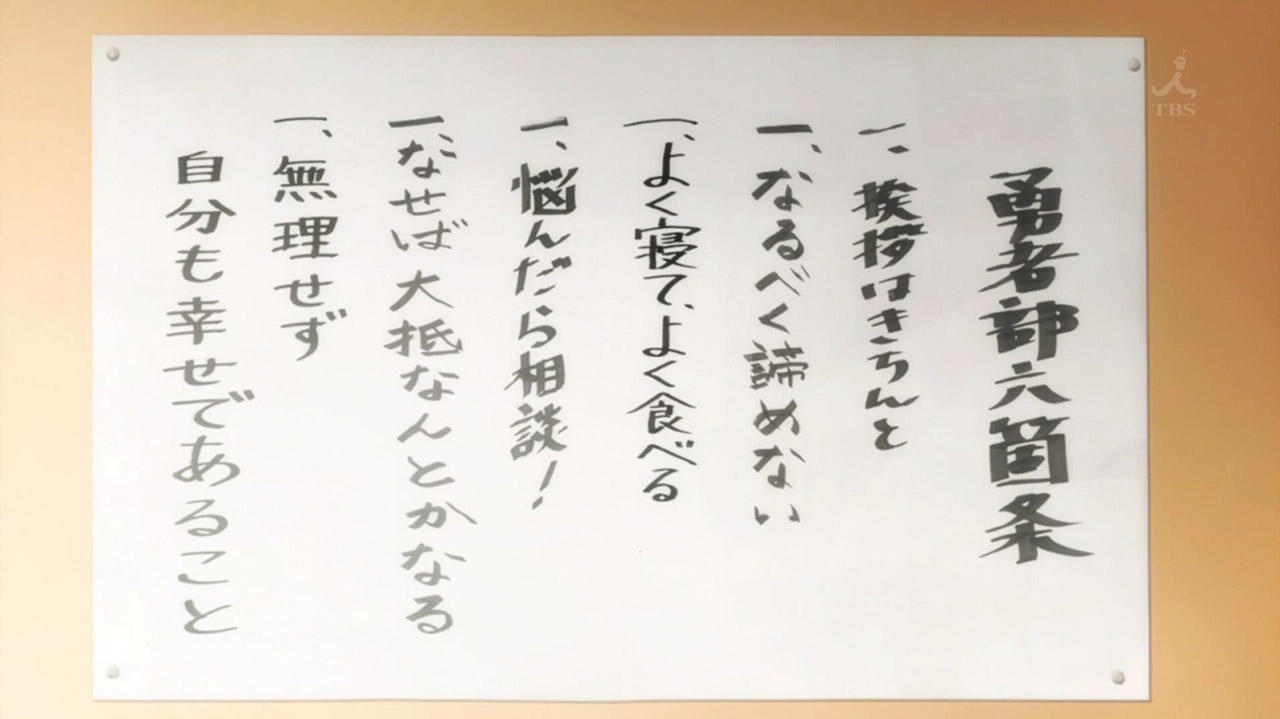 勇者部六箇条
一、挨拶はきちんと
一、なるべく諦めない
一、よく寝て、よく食べる
一、悩んだら相談!
一、なせば大抵なんとかなる
一、無理せず
自分も幸せであること
TBS